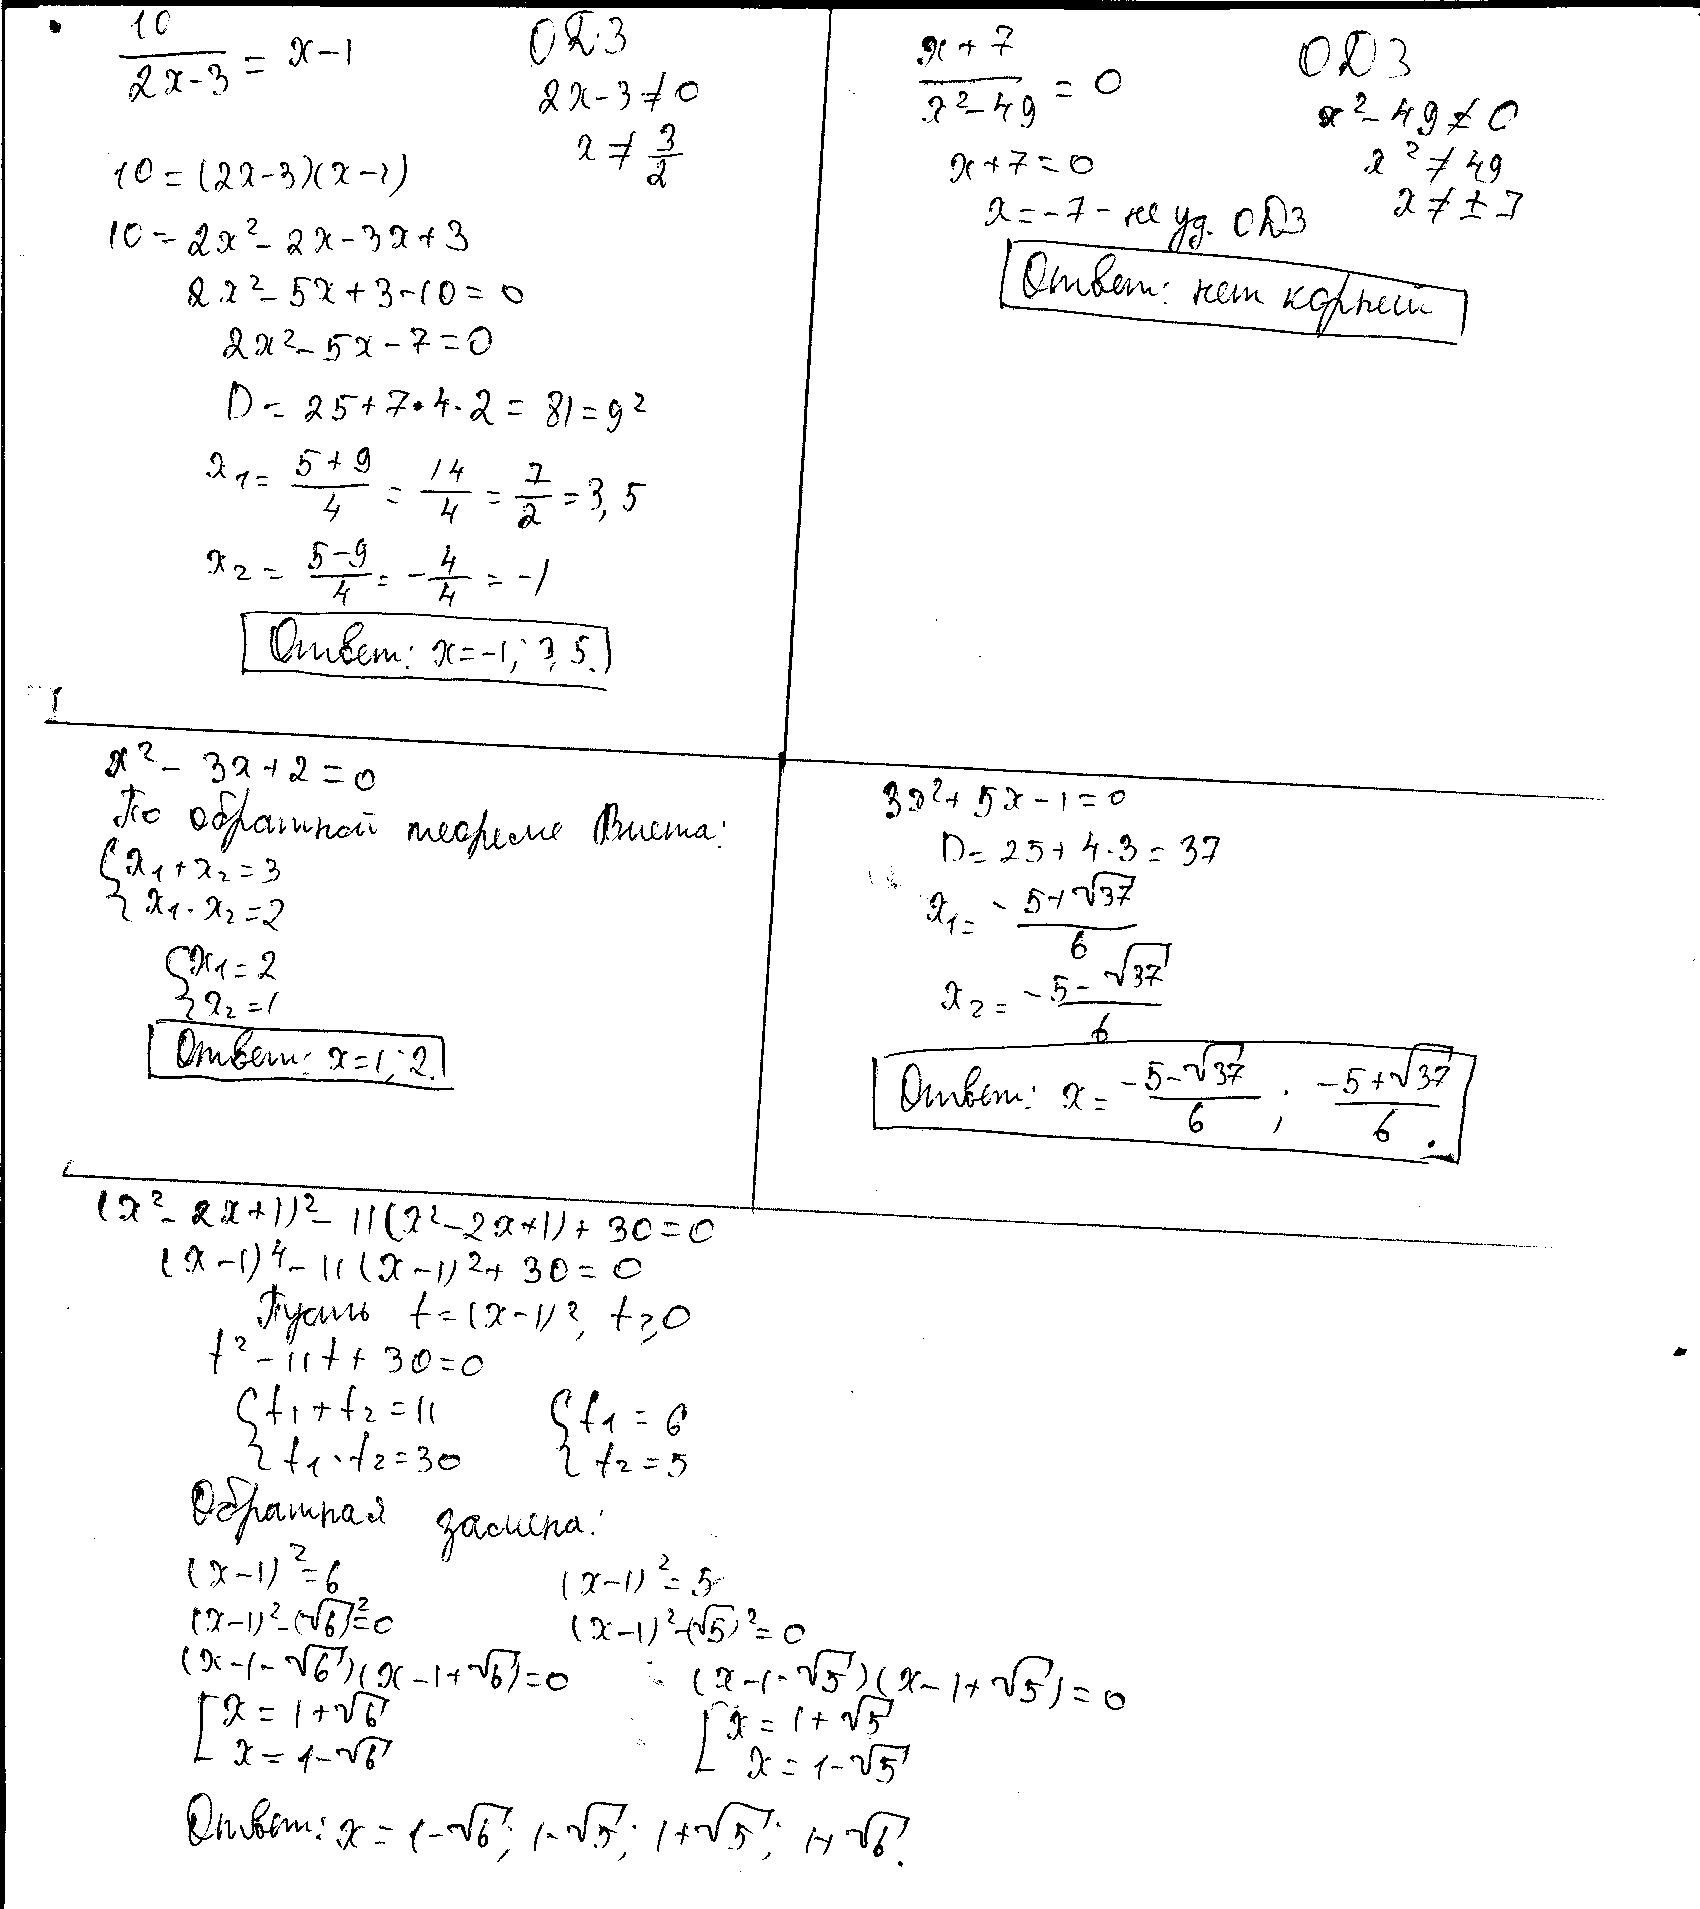 10/(2x-3) = x-1
ОДЗ
2x-3≠0
x≠3/2
10=(2x-3)(x-1)
10=2x²-2x-3x+3
2x²-5x+3-10=0
2x²-5x-7=0
D=25+7·4·2=81=9²
x₁=(5+9)/4=14/4=7/2=3,5
x₂=(5-9)/4=-4/4=-1
Ответ: x=-1; 3,5.
(x+7)/(x²-49)=0
ОДЗ
x²-49≠0
x²≠49
x≠±7
x+7=0
x=-7-не уд. ОДЗ
Ответ: нет корней
x²-3x+2=0
По обратной теореме Виета:
{x₁+x₂=3
x₁·x₂=2
{x₁=2
x₂=1
Ответ: x=1; 2.
3x²+5x-1=0
D=25+4·3=37
x₁=(-5+√37)/6
x₂=(-5-√37)/6
Ответ: x=(-5-√37)/6; (-5+√37)/6.
(x²-2x+1)²-11(x²-2x+1)+30=0
(x-1)⁴-11(x-1)²+30=0
Пусть t=(x-1)², t≥0
t²-11t+30=0
{t₁+t₂=11
t₁·t₂=30
{t₁=6
t₂=5
Обратная замена:
(x-1)²=6
(x-1)²-(√6)²=0
(x-1-√6)(x-1+√6)=0
[x=1+√6
x=1-√6
(x-1)²=5
(x-1)²-(√5)²=0
(x-1-√5)(x-1+√5)=0
[x=1+√5
x=1-√5
Ответ: x=1-√6; 1-√5; 1+√5; 1+√6.